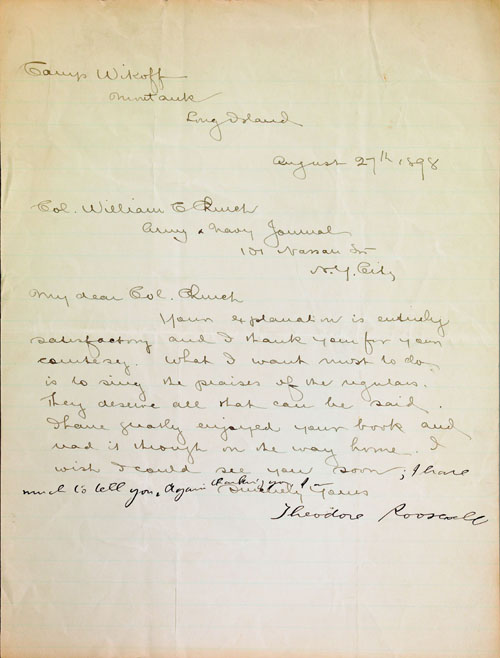 Camp Wikoff
Montauk
Long Island
August 27th 1898
Col. William C Church
Army & Navy Journal
101 Nassau St
N.Y. City
My dear Col. Church
Your explanation is entirely
satisfactory and I thank you for your
courtesy. What I want most to do
is to sing the praises of the regulars.
They deserve all that can be said.
I have greatly enjoyed your book and
read it through on the way home. I
wish I could see you soon; I have
much to tell you. Again thanking you, I am
Sincerely Yours
Theodore Roosevelt